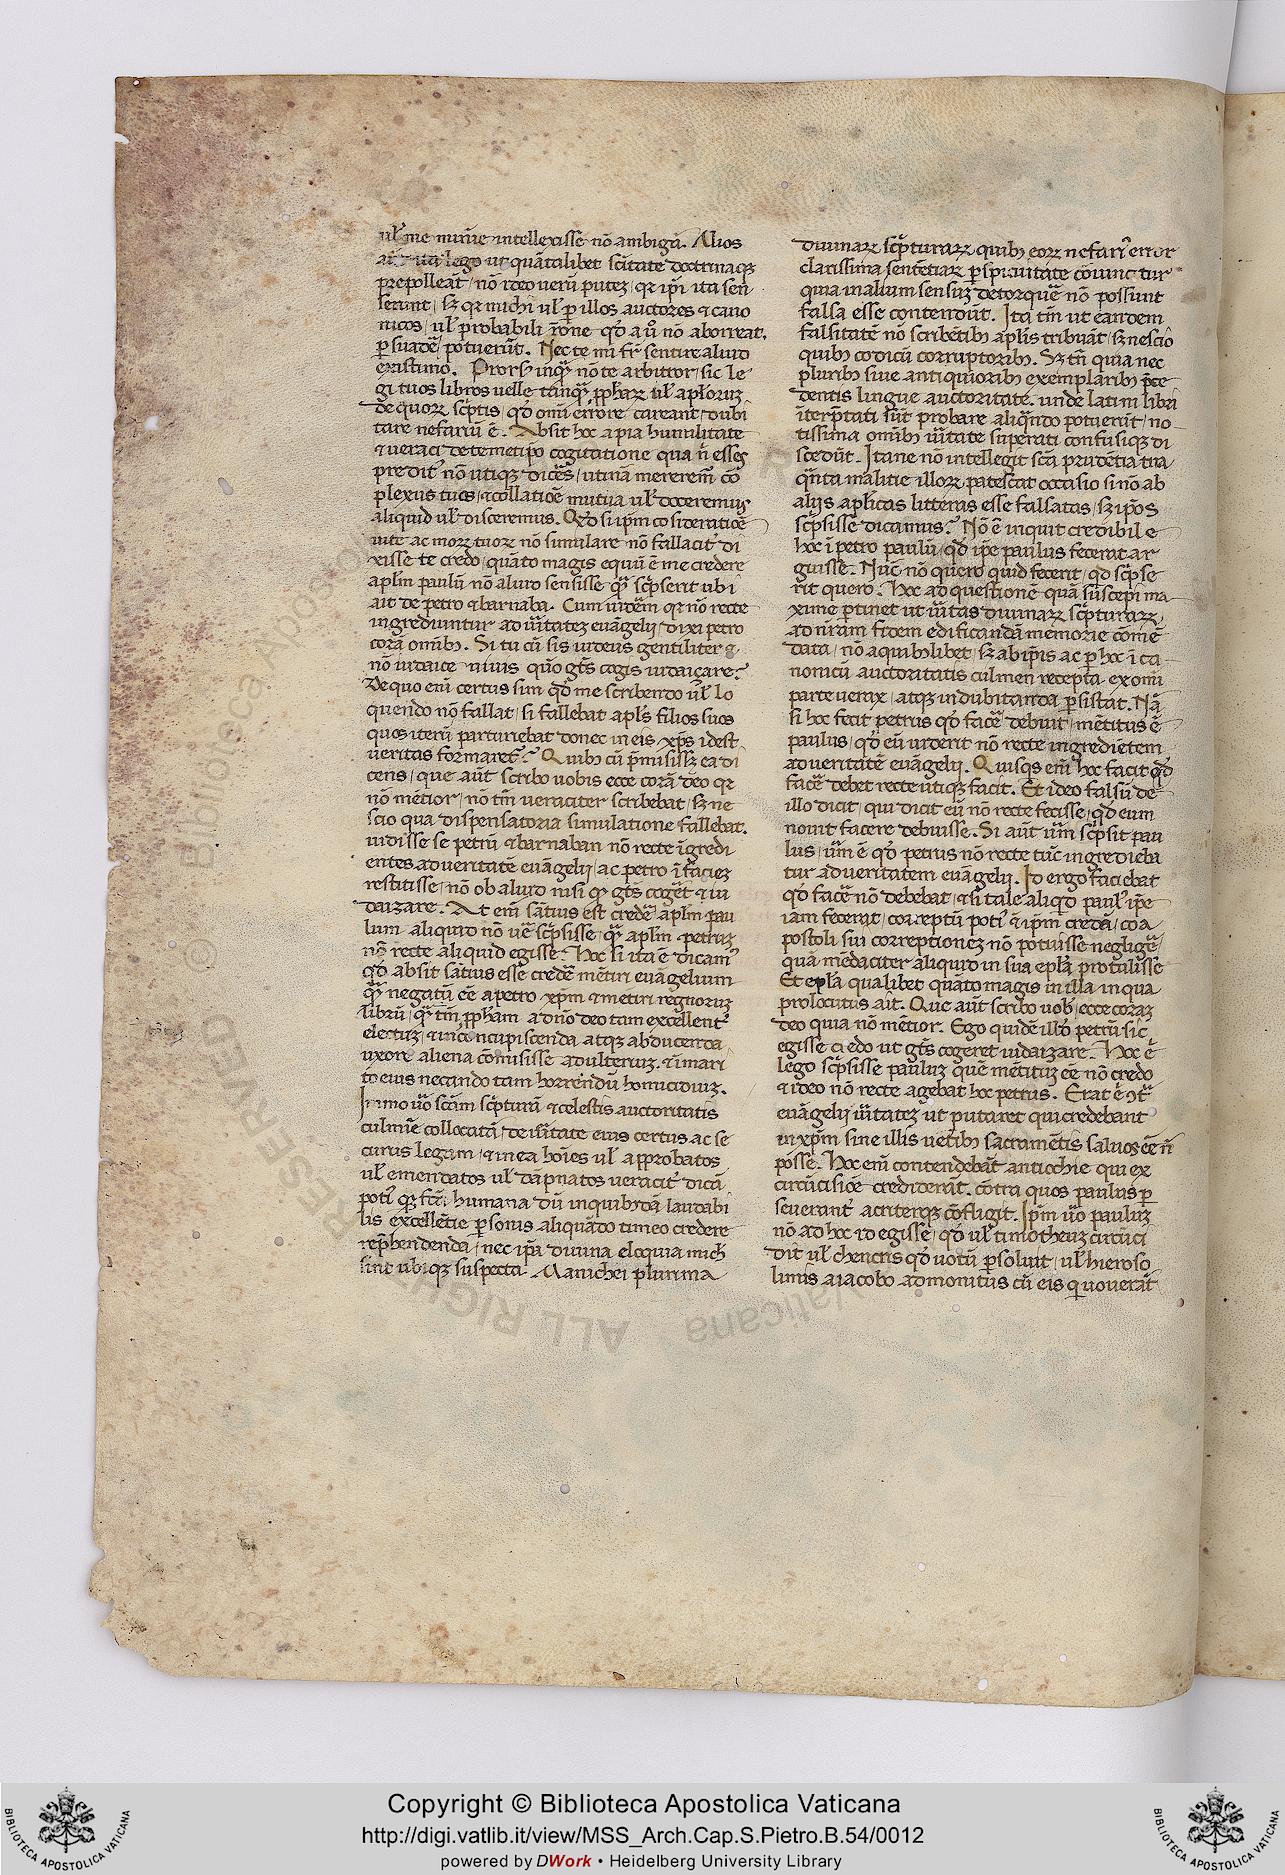 ul̄ me minīe intellexisse nō ambigā. Alios
aūt ita lego ut quātalibet scītate doctrinaqꝫ
prepolleāt, nō ideo uerū putez, qꝛ ip̄i ita sen
serunt, sꝫ qꝛ michi ul̄ ꝑ illos auctores ⁊ cano
nicos, ul̄ probabili r̄one qđ a uo̊ nō aborreat,
ꝑsuadē potuerūt. Nec te mi fr̄ sentire aliud
existimo. Prorsꝰ inqꝫ nō te arbitror, sic le
gi tuos libros uelle tanqꝫ ꝓphaꝝ ul̄ apl̄oruꝫ
De quoꝝ scp̄tis qđ omī errore careant, dubi
tare nefariū ē. Absit hoc a pia humilitate
⁊ ueraci de temetipo cogitatione qua n̄ esses
preditꝰ nō utiqꝫ dicēs, utinā mererem̄ cō
plexus tuos, ⁊ collatioē mutua ul̄ doceremus
aliquid ul̄ disceremus. Qđ si ip̄m cōsideratiōe
uite ac moꝝ tuoꝝ nō simulare nō fallacitꝰ di
xisse te credo, quāto magis equū ē me credere
apl̄m paulū nō aliud sensisse qꝫ scp̄serit ubi
ait de petro ⁊ barnaba. Cum uidēm qꝛ nō recte
ingrediuntur ad ūitatez euāgelij, dixi petro
corā omibꝫ. Si tu cū sis iudeus gentiliter ⁊
nō iudaice uiuis quo gt̄s cogis iudaiçare?
De quo eni certus sim qđ me scribendo ul̄ lo
quendo nō fallat, si fallebat apl̄s filios suos
quos iterū parturiebat donec in eis xp̄s idest
ueritas formaret̄? Quibꝫ cū p̄misissꝫ ea di
cens, que aūt scribo uobis ecce corā deo qꝛ
nō mētior, nō tm̄ ueraciter scribebat, sꝫ ne
scio qua dispensatoria simulatione fallebat.
uidisse se petrū ⁊ barnaban nō recte īgredi
entes ad ueritatē euāgelij, ac petro ī faciez
restitisse, nō ob aliud nisi qꝫ gt̄s cogēt ⁊ iu
daizare. At eni satius est credē apl̄m pau
lum aliquid nō ue scp̄sisse, qꝫ apl̄m petruꝫ
nō recte aliquid egisse. Hoc si ita ē dicamꝰ
qđ absit satius esse credē mētiri euāgelium
qꝫ negatū eē a petro xp̄m ⁊ mētiri regnoruꝫ
librū, qꝫ tm̄ ꝓpham a dn̄o deo tam excellentꝰ
electuꝫ, ⁊ in concupiscenda atqꝫ abducenda
uxore aliena cōmisisse adulteriuꝫ, ⁊ in mari
to eius necando tam horrendū homicidiuꝫ.
Immo ūo scām scp̄turā ⁊ celestis auctoritatis
culmīe collocatā, de ūitate eius certus ac se
curus legam, ⁊ in ea hoīes ul̄ approbatos
ul̄ emendatos ul̄ dāpnatos ueracitꝰ dicā
potiꝰ qꝫ fc̄ā humana dū in quibꝰdā laudabi
lis excellētie ꝑsonis aliquādo timeo credere
rep̄hendenda, nec ip̄a diuina eloquia mich
sint ubiqꝫ suspecta. Manichei plurima
diuinaꝝ scp̄turaꝝ, quibꝫ eoꝝ nefariꝰ error
clarissima sentētiaꝝ ꝑspicuitate cōuinc tur
quia in alium sensuꝫ detorquē nō possunt
falsa esse contendūt. Ita tm̄ ut eandem
falsitatē nō scribētibꝫ apl̄is tribuāt, sꝫ nescio
quibꝫ codicū corruptoribꝫ. Sꝫ tn̄ quia nec
pluribꝫ siue antiquioribꝫ exemplaribꝫ p̄ce
dentis lingue auctoritate, unde latini libri
iterp̄tati sūt probare aliqn̄do potuerūt, no
tissima omībꝫ ūitate superati confusiqꝫ di
scedūt. Itane nō intellegit scā prudētia tua
qn̄ta malitie illoꝝ patescat occasio si nō ab
alijs apl̄icas litteras esse falsatas, sꝫ ip̄os
scp̄sisse dicamus? Nō ē inquit credibil e
hoc ī petro paulū, qđ ip̄e paulus fecerat ar
guisse. Nūc nō quero quid fecerit, qđ scp̄se
rit quero. Hoc ad questionē quā suscepi ma
xime ꝑtinet ut ūitas diuinaꝝ scp̄turaꝝ,
ad nr̄am fidem edificandā memorie comē
data, nō a quibꝫlibet, sꝫ ab ip̄is ac ꝑ hoc ī ca
nonicū auctoritatis culmen recepta ex omi
parte uerax, atqꝫ indubitanda ꝑsistat. Nā
si hoc fecit petrus qđ facē debuit, mētitus ē
paulus, qđ eū uiderit nō recte ingredietem
ad ueritatē euāgelij. Quisqꝫ eni hoc facit qđ
facē debet recte utiqꝫ facit. Et ideo falsū de
illo dicit, qui dicit eū nō recte fecisse, qđ eum
nouit facere debuisse. Si aūt ūm scp̄sit pau
lus, ūm ē qđ petrus nō recte tūc ingredieba
tur ad ueritatem euāgelij. Id ergo faciebat
qđ facē nō debebat, ⁊ si tale aliqđ paulꝰ ip̄e
iam fecerat, correptū potiꝰ ⁊ ip̄m credā, coa
postoli sui correptionez nō potuisse negligē
quā mēdaciter aliquid in sua epl̄a protulisse
Et epl̄a qualibet quāto magis in illa in qua
prolocutus ait. Que aūt scribo uobꝫ, ecce coraꝫ
deo quia nō mētior. Ego quidē illō petrū sic
egisse credo ut gt̄s cogeret iudaizare. Hoc ē
lego scp̄sisse pauluꝫ quē mētituꝫ eē nō credo
⁊ ideo nō recte agebat hoc petrus. Erat ē ꝯtꝰ
euāgelij ūitatez ut putaret qui credebant
in xp̄m sine illis uetibꝫ sacramētis saluos eē n̄
posse. Hoc eni contendebāt antiochie qui ex
circūcisiōe crediderāt, cōtra quos paulus ꝑ
seuerantꝰ acriterqꝫ cōfligit. Ip̄m ūo pauluꝫ
nō ad hoc id egisse, qđ ul̄ timotheuꝫ circūci
dit ul̄ chencris qđ uotū ꝑsoluit, ul̄ hieroso
limis a iacobo admonitus cū eis qui uouerāt
Copyright © Biblioteca Apostolica Vaticana
http://digi.vatlib.it/view/MSS_Arch.Cap.S.Pietro.B.54/0012
powered by DWork • Heidelberg University Library